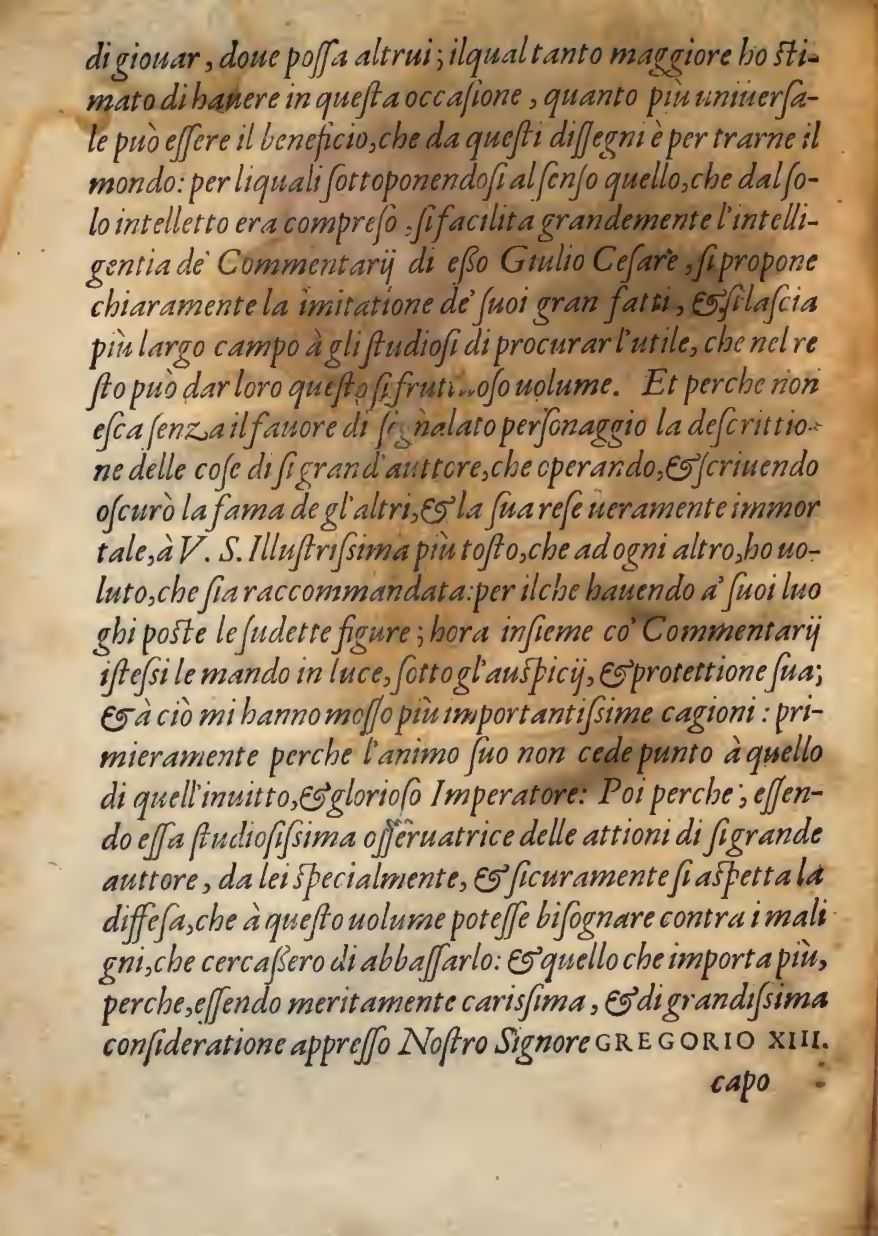 di giouar, doue poſſa altrui; ilqual tanto maggiore ho ſti-
mato di hauere in queſta occaſione, quanto più uniuerſa-
le può eſſere il beneficio, che da queſti diſſegni è per trarne il
mondo: per liquali ſottoponendoſi al ſenſo quello, che dal ſo-
lo intelletto era compreſo, ſi facilita grandemente l'intelli-
gentia de' Commentarij di eßo Giulio Ceſare, ſi propone
chiaramente la imitatione de' ſuoi gran fatti, & ſi laſcia
più largo campo à gli ſtudioſi di procurar l'utile, che nel re
ſto può dar loro queſto ſi uolume. Et perche non
eſca ſenza il fauore di ſegnalato perſonaggio la deſcrittio-
ne delle coſe di ſi grand'auttore, che operando, & ſcriuendo
oſcurò la fama de gl'altri, & la ſua reſe ueramente immor
tale, à V. S. Illuſtriſsima più toſto, che ad ogni altro, ho uo-
luto, che ſia raccommandata: per ilche hauendo a' ſuoi luo
ghi poſte le ſudette figure; hora inſieme co' Commentarij
iſteſsi le mando in luce, ſotto gl'auſpicij, & protettione ſua;
& à ciò mi hanno moſſo più importantiſsime cagioni: pri-
mieramente perche l'animo ſuo non cede punto à quello
di quell'inuitto, & glorioſo Imperatore: Poi perche, eſſen-
do eſſa ſtudioſiſsima oſſeruatrice delle attioni di ſi grande
auttore, da lei ſpecialmente, & ſicuramente ſi aſpetta la
diffeſa, che à queſto uolume poteſſe biſognare contra i mali
gni, che cercaßero di abbaſſarlo: & quello che importa più,
perche, eſſendo meritamente cariſsima, & di grandiſsima
conſideratione appreſſo Noſtro Signore GREGORIO XIII.
capo